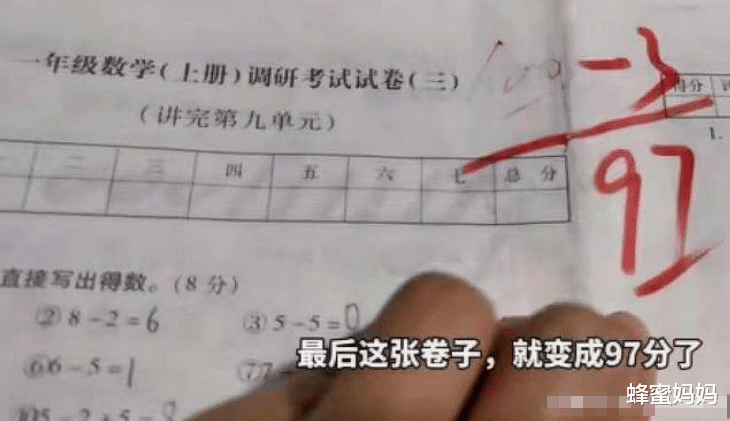 一年级数学(上册)调研考试试卷(三)
-3
得分
(讲完第九单元)
97
1.
二 三 四 五 六 七 总分
直接写出得数。(8分)
②8-2=6 ③5-5=0
⑥6-5=1 ⑦7-
最后这张卷子，就变成97分了
蜂蜜妈妈